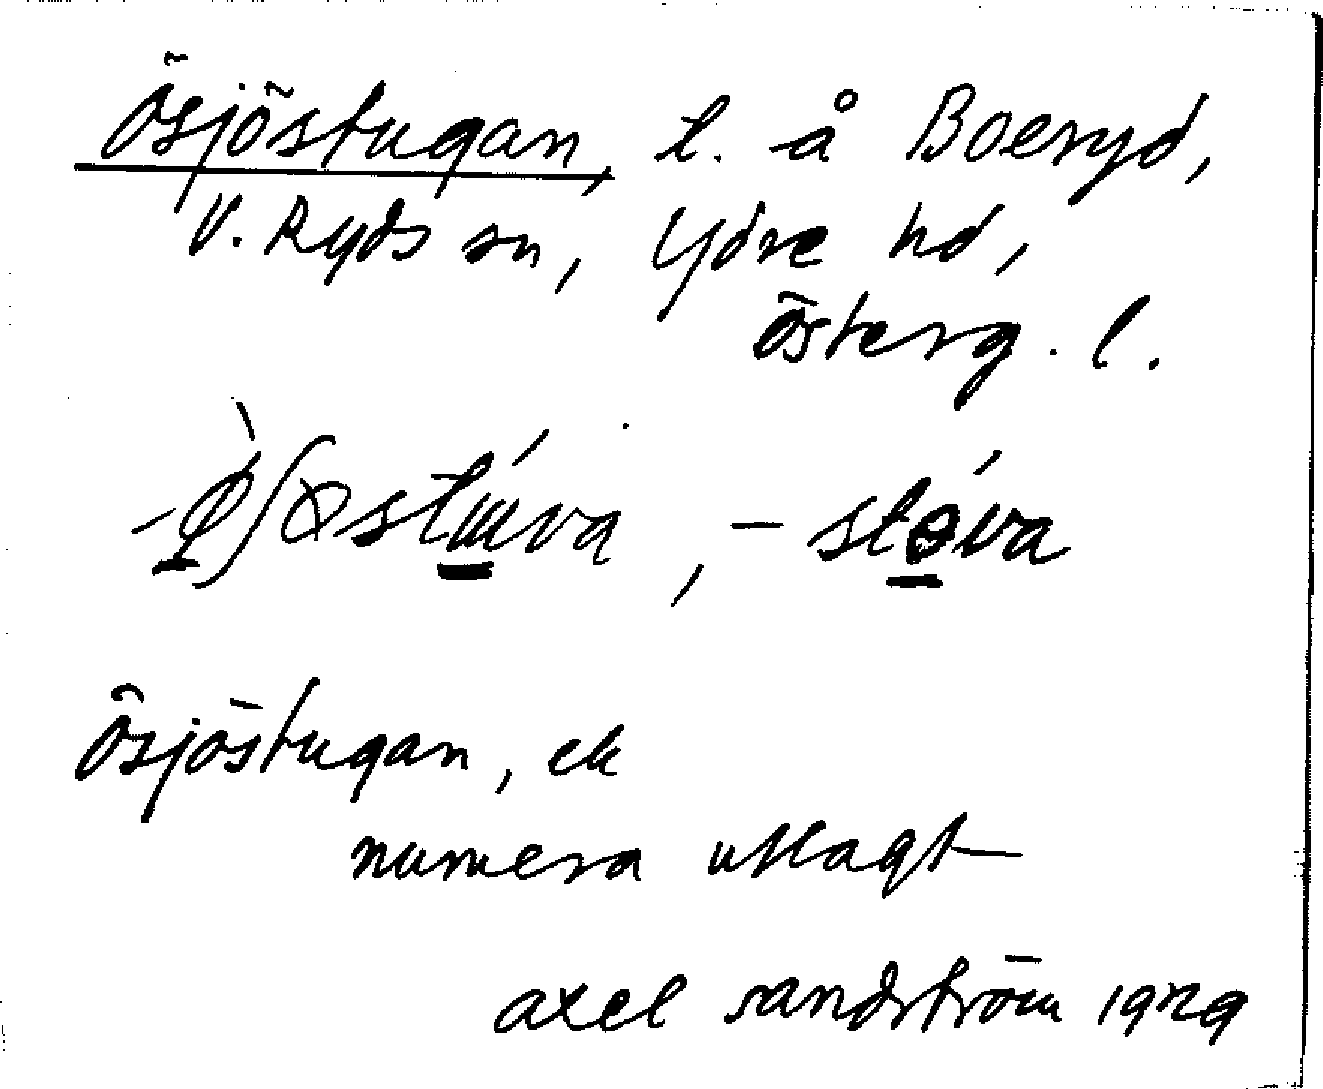 Ösjöstugan, l. å Boeryd,
V. Ryds sn, Ydre hd,
Österg. l.
Ösjöstugan, ek
numera utlagt
axel sandström 1929